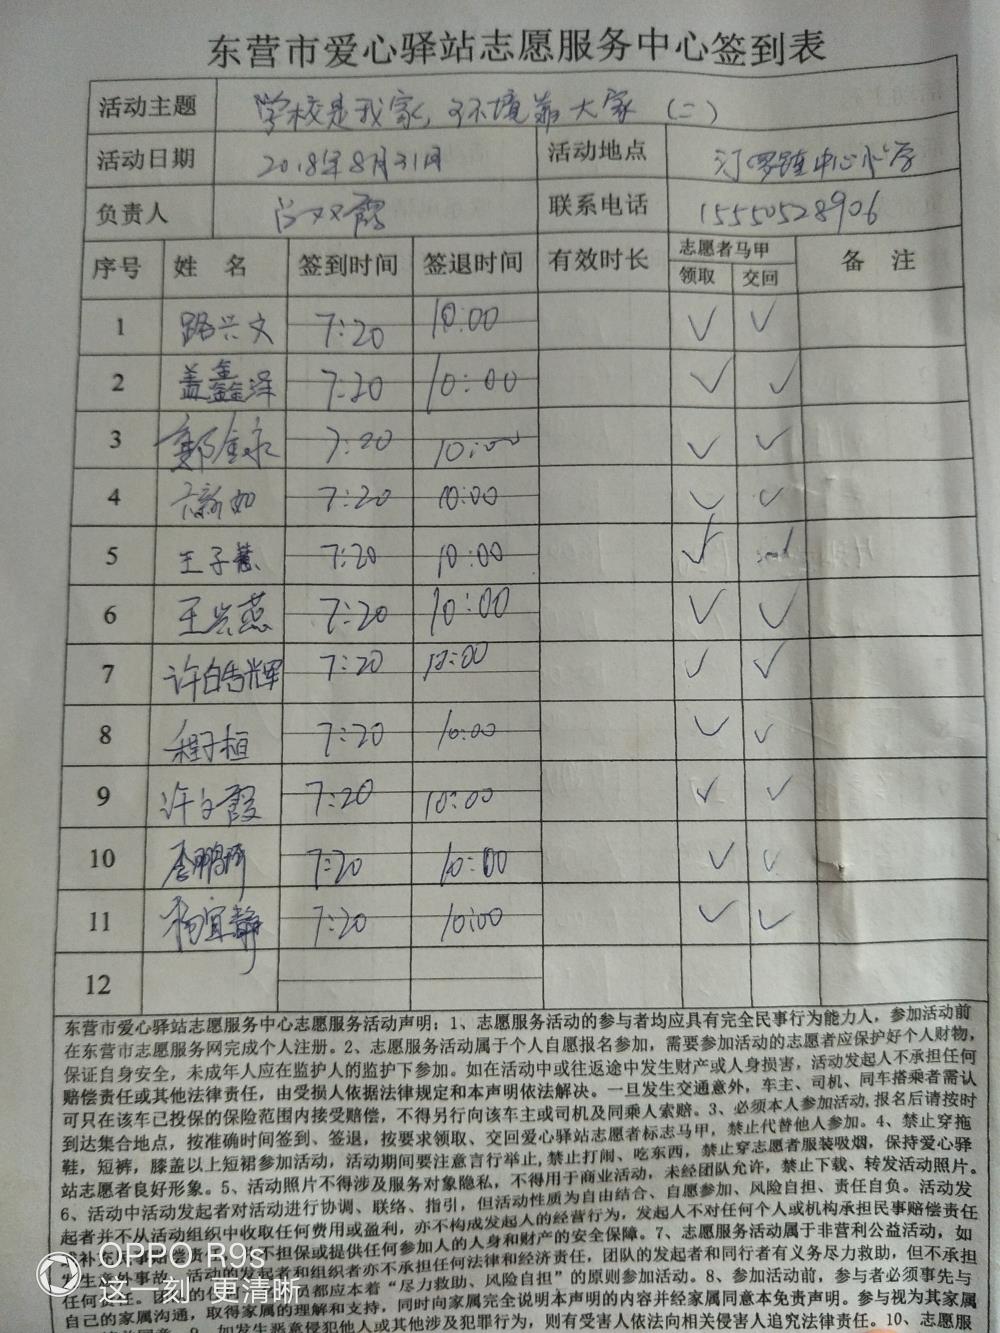 东营市爱心驿站志愿服务中心签到表
活动主题 学校是我家,环境靠大家(二)
活动日期 2018年8月31日 活动地点 汀罗镇中心小学
负责人 双霞 联系电话 15550528906
序号 姓 名 签到时间 签退时间 有效时长 志愿者马甲 备 注
领取 交回
1 路兴文 7:20 10:00 ✓ ✓
2 盖鑫泽 7:20 10:00 ✓ ✓
3 郭金永 7:20 10:00 ✓ ✓
4 7:20 10:00 ✓ ✓
5 王子慧 7:20 10:00 ✓
6 王兴燕 7:20 10:00 ✓ ✓
7 许皓辉 7:20 10:00 ✓ ✓
8 程子桓 7:20 10:00 ✓ ✓
9 许文霞 7:20 10:00 ✓ ✓
10 李鹏 7:20 10:00 ✓ ✓
11 杨宜静 7:20 10:00 ✓ ✓
12
东营市爱心驿站志愿服务中心志愿服务活动声明:1、志愿服务活动的参与者均应具有完全民事行为能力人,参加活动前
在东营市志愿服务网完成个人注册。2、志愿服务活动属于个人自愿报名参加,需要参加活动的志愿者应保护好个人财物,
保证自身安全,未成年人应在监护人的监护下参加。如在活动中或往返途中发生财产或人身损害,活动发起人不承担任何
赔偿责任或其他法律责任,由受损人依据法律规定和本声明依法解决。一旦发生交通意外,车主、司机、同车搭乘者需认
可只在该车已投保的保险范围内接受赔偿,不得另行向该车主或司机及同乘人索赔。3、必须本人参加活动,报名后请按时
到达集合地点,按准确时间签到、签退,按要求领取、交回爱心驿站志愿者标志马甲,禁止代替他人参加。4、禁止穿拖
鞋,短裤,膝盖以上短裙参加活动,活动期间要注意言行举止,禁止打闹、吃东西,禁止穿志愿者服装吸烟,保持爱心驿
站志愿者良好形象。5、活动照片不得涉及服务对象隐私,不得用于商业活动,未经团队允许,禁止下载、转发活动照片。
6、活动中活动发起者对活动进行协调、联络、指引,但活动性质为自由结合、自愿参加、风险自担、责任自负。活动发
起者并不从活动组织中收取任何费用或盈利,亦不构成发起人的经营行为,发起人不对任何个人或机构承担民事赔偿责任
或补 不担保或提供任何参加人的人身和财产的安全保障。7、志愿服务活动属于非营利公益活动,如
发生意外事故,活动的发起者和组织者亦不承担任何法律和经济责任,团队的发起者和同行者有义务尽力救助,但不承担
任何责任。团 员都应本着“尽力救助、风险自担”的原则参加活动。8、参加活动前,参与者必须事先与
自己的家属沟通,取得家属的理解和支持,同时向家属完全说明本声明的内容并经家属同意本免责声明。参与视为其家属
9、如发生恶意侵犯他人或其他涉及犯罪行为,则有受害人依法向相关侵害人追究法律责任。10、志愿服
OPPO R9s
这一刻 更清晰